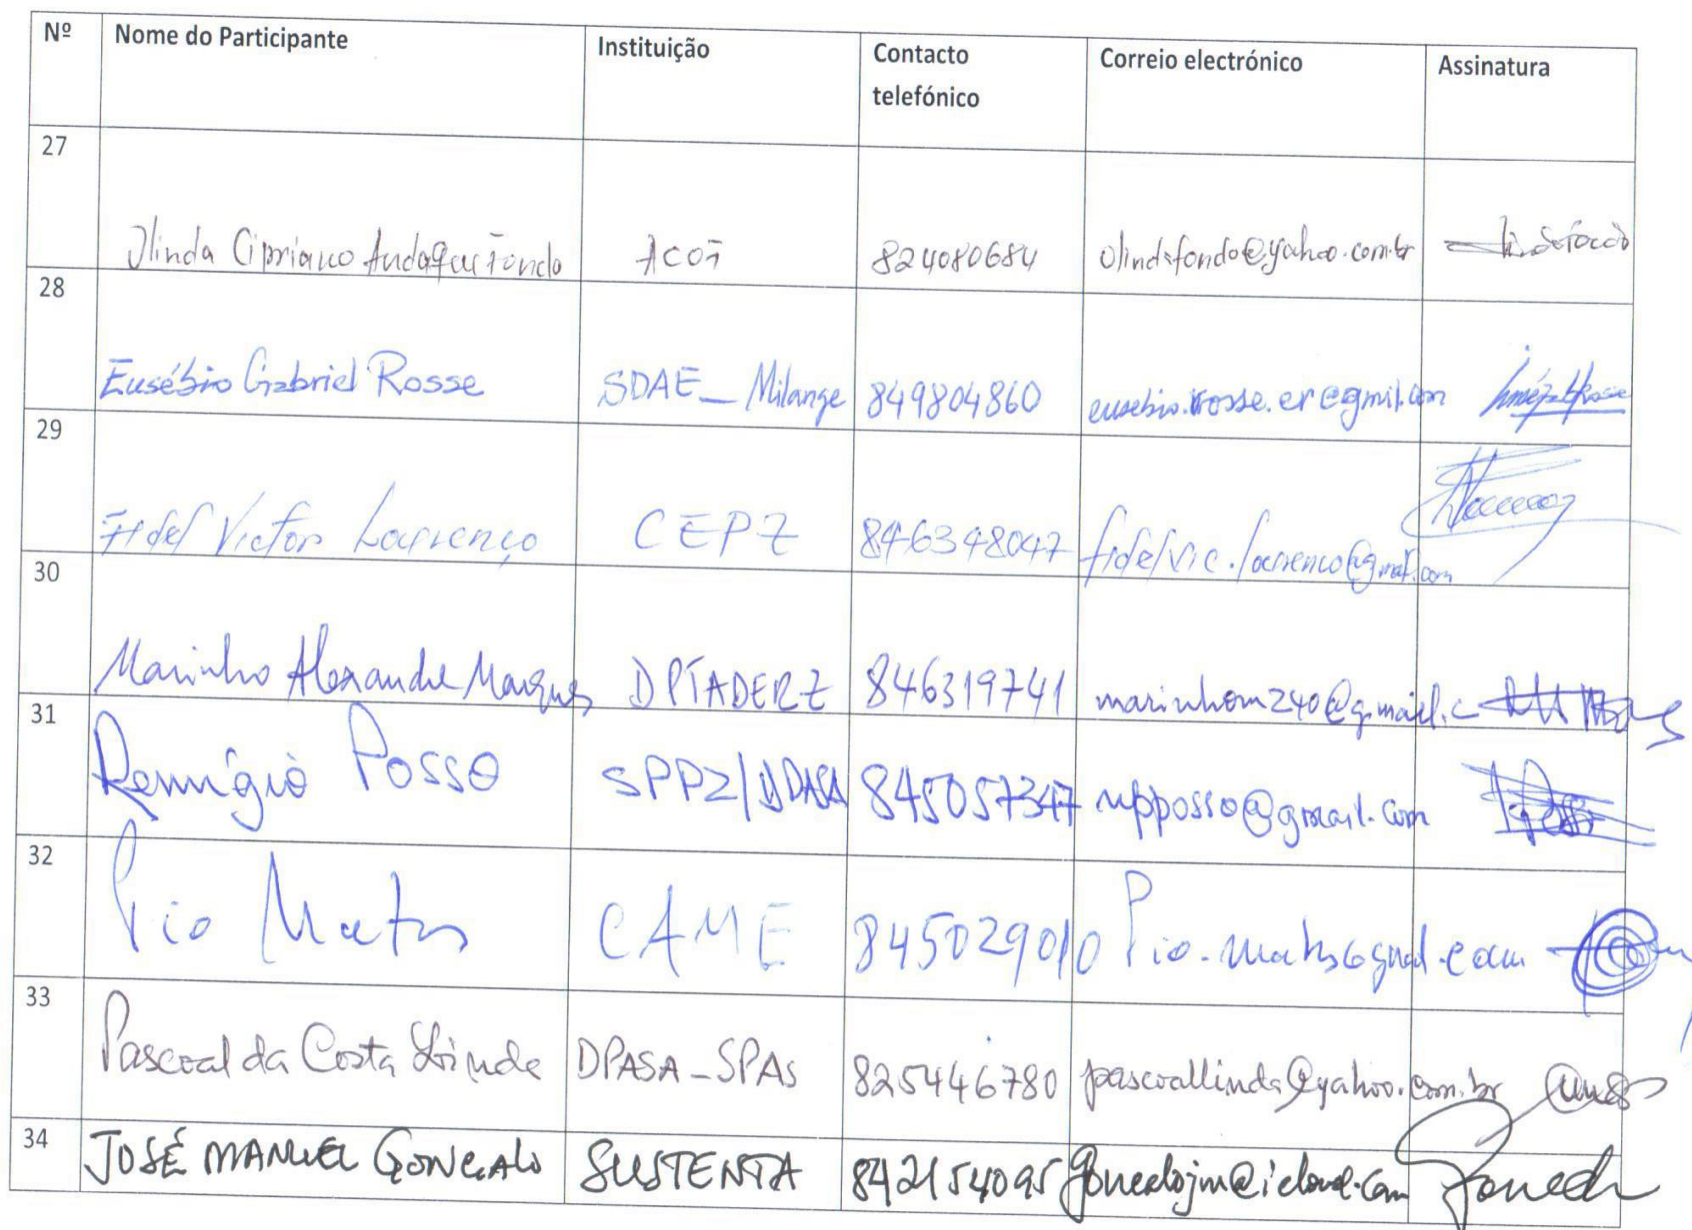 Nº Nome do Participante Instituição Contacto telefónico Correio electrónico Assinatura
27
Olinda Cipriano Fondo 824080684 olindafondo@yahoo.com.br
28
Eusébio Gabriel Rosse SDAE_Milange 849804860 eusebio.rosse.er@gmil.com
29
Fidel Victor Lourenço CEPZ 846348047 fidelvic.lourenco@gmail.com
30
Marinho Alexandre Marques DPTADERZ 846319741 marinhom240@gmail.c
31
Remígio Posso SPPZ/DPASA 845057347 rpposso@gmail.com
32
Pio Matos CAME 845029010 Pio.matos@gmail.com
33
Pascoal da Costa Linde DPASA_SPAs 825446780 pascoallinda@yahoo.com.br
34
JOSÉ MANUEL GONCALO SUSTENTA 842154095 goncalojm@icloud.com